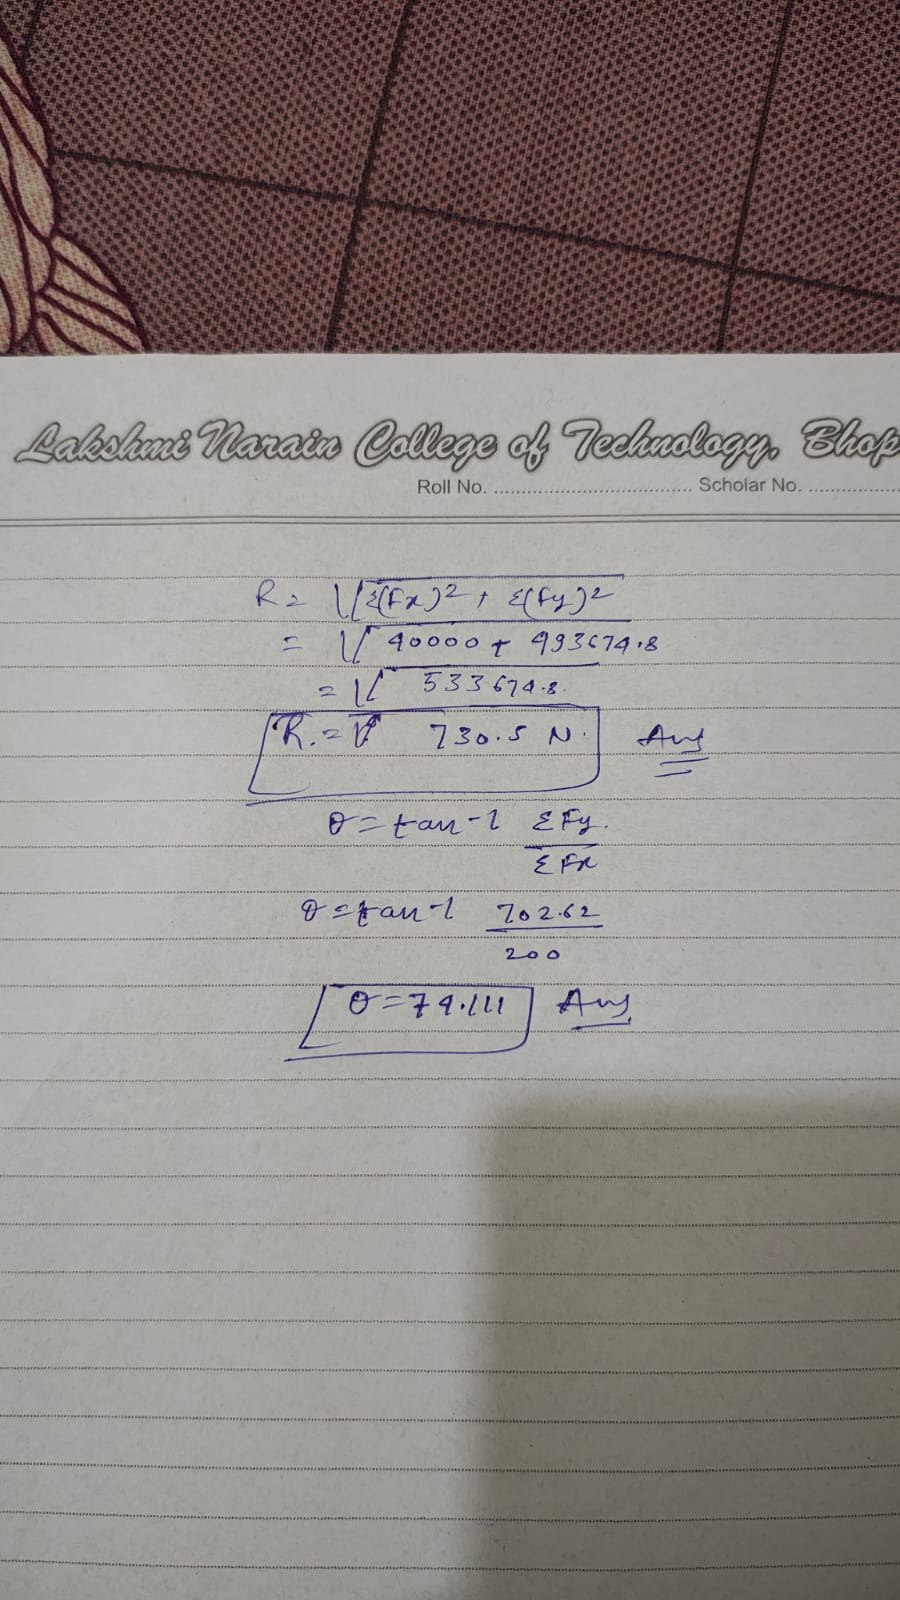 Lakshmi Narain College of Technology, Bhop
Roll No. .................................. Scholar No. ................
R = √Σ(Fx)2 + Σ(Fy)2
= √ 40000 + 493674.8
= √ 533674.8.
R. = 730.5 N. Ans
θ = tan-1 ΣFy.
ΣFx
θ = tan-1 702.62
200
θ = 74.111 Ans